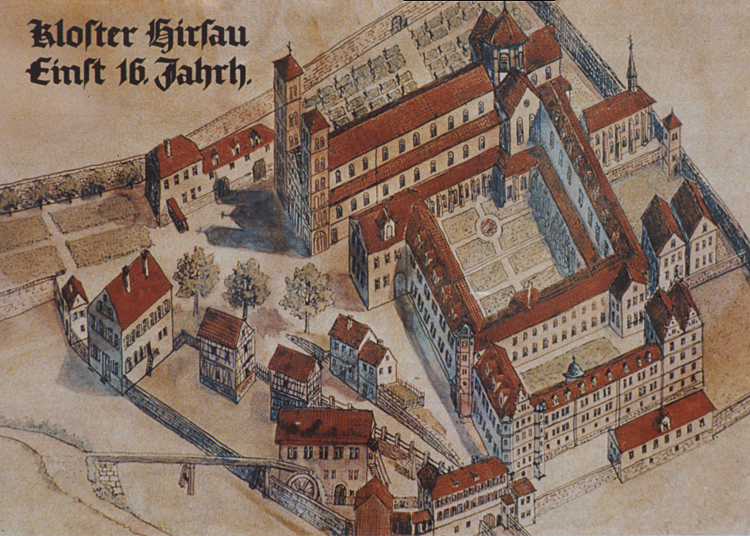 Kloster Hirsau
Einst 16. Jahrh.